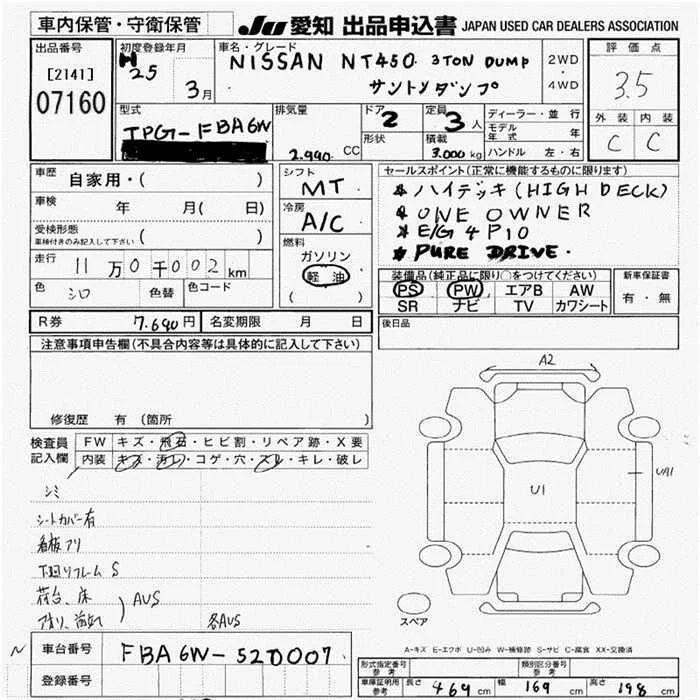 車内保管・守衛保管 JU 愛知 出品申込書 JAPAN USED CAR DEALERS ASSOCIATION
出品番号 初度登録年月 車名・グレード 評価点
[2141] H 25 NISSAN NT450 3TON DUMP 2WD
07160 3月 サントンダンプ ・4WD 3.5
型式 排気量 ドア 定員 ディーラー・並行 外装 内装
TPG-FBA6W 2 3人 モデル年式 年 C C
2.990 CC 形状 積載 3.000kg ハンドル 左・右
車歴 自家用・( ) シフト MT セールスポイント(正常に機能するものに限ります)
車検 年 月( 日) 冷房 A/C * ハイデッキ(HIGH DECK)
受検形態 ( ) * ONE OWNER
車検付きのみ記入して下さい 燃料 * E/G 4P10
走行 11万0千002km ガソリン * PURE DRIVE.
色 シロ 色替 色コード 軽油 ( )
装備品(純正品に限り○をつけてください) 新車保証書
PS PW エアB AW 有・無
SR ナビ TV カワシート
R券 7.690円 名変期限 月 日 後日品
注意事項申告欄(不具合内容等は具体的に記入して下さい)
修復歴 有(箇所
検査員 FW キズ・飛石・ヒビ割・リペア跡・X要
記入欄 内装 キズ・汚レ・コゲ・穴・スレ・キレ・破レ
シミ
シートカバー有
看板アリ
下廻リフレームS
荷台、床 AUS
各AUS
A2
U1
UA1
スペア
A-キズ E-エクボ U-凹み W-補修跡 S-サビ C-腐食 XX-交換済
N 車台番号 FBA6W-520007
登録番号
形式指定番号 参考 類別区分番号 参考
車庫証明用 参考 長さ 469cm 幅 169cm 高さ 198cm